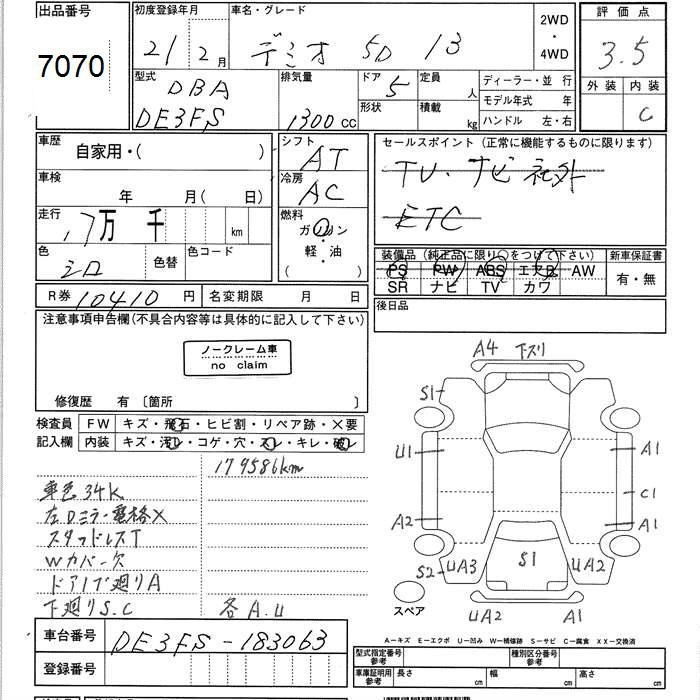 出品番号
7070
初度登録年月
21 2月
車名・グレード
デミオ 5D 13
2WD
・
4WD
評価点
3.5
外装 内装
C
型式
DBA
DE3FS
排気量
1300 CC
ドア 5
形状
定員 人
積載 kg
ディーラー・並行
モデル年式 年
ハンドル 左・右
車歴
自家用・( )
車検
年 月( 日)
走行
17万 千 km
色
シロ
色替
色コード
シフト
AT
冷房
AC
燃料
ガソリン
・
軽・油
( )
セールスポイント (正常に機能するものに限ります)
TV・ナビ 社外
ETC
装備品(純正品に限り○をつけて下さい)
PS PW ABS エアB AW
SR ナビ TV カワ
新車保証書
有・無
R券 10410 円
名変期限 月 日
後日品
注意事項申告欄(不具合内容等は具体的に記入して下さい)
ノークレーム車
no claim
修復歴 有 〔箇所 〕
検査員
記入欄
FW キズ・飛石・ヒビ割・リペア跡・×要
内装 キズ・汚レ・コゲ・穴・スレ・キレ・破レ
179586km
車色 34K
左Dミラー電格×
スタッドレスT
Wカバー欠
ドア1ブ廻りA
下廻りS.C
各A.U
A4 下スリ
S1
U1
A1
C1
A2
A1
S2
UA3
S1
UA2
スペア
UA2
A1
A-キズ E-エクボ U-凹み W-補修跡 S-サビ C-腐食 XX-交換済
車台番号
DE3FS-183063
登録番号
型式指定番号
参考
種別区分番号
参考
車庫証明用
参考
長さ cm
幅 cm
高さ cm